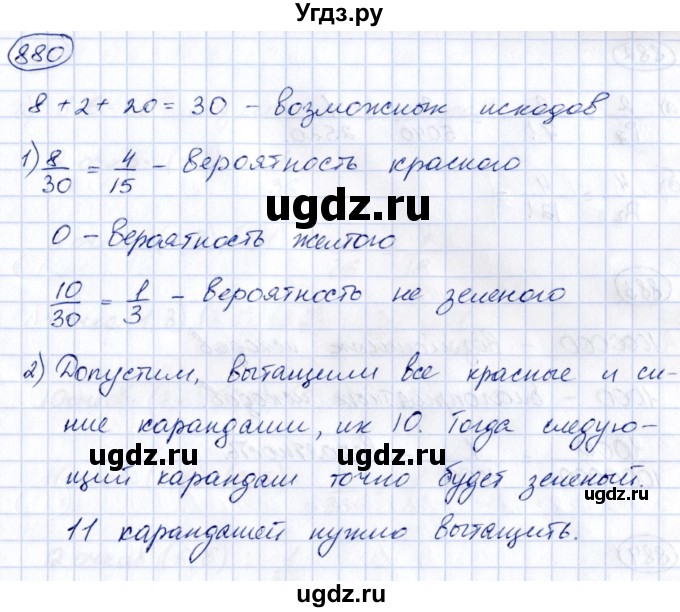 Угдз.ру
880
8 + 2 + 20 = 30 – возможных исходов
1) 8/30 = 4/15 – вероятность красного
ugdz.ru
0 – вероятность желтого
10/30 = 1/3 – вероятность не зеленого
ugdz.ru
2) Допустим, вытащили все красные и си-
ние карандаши, их 10. Тогда следую-
ugdz.ru
щий карандаш точно будет зеленый.
ugdz.ru
11 карандашей нужно вытащить.
ugdz.ru